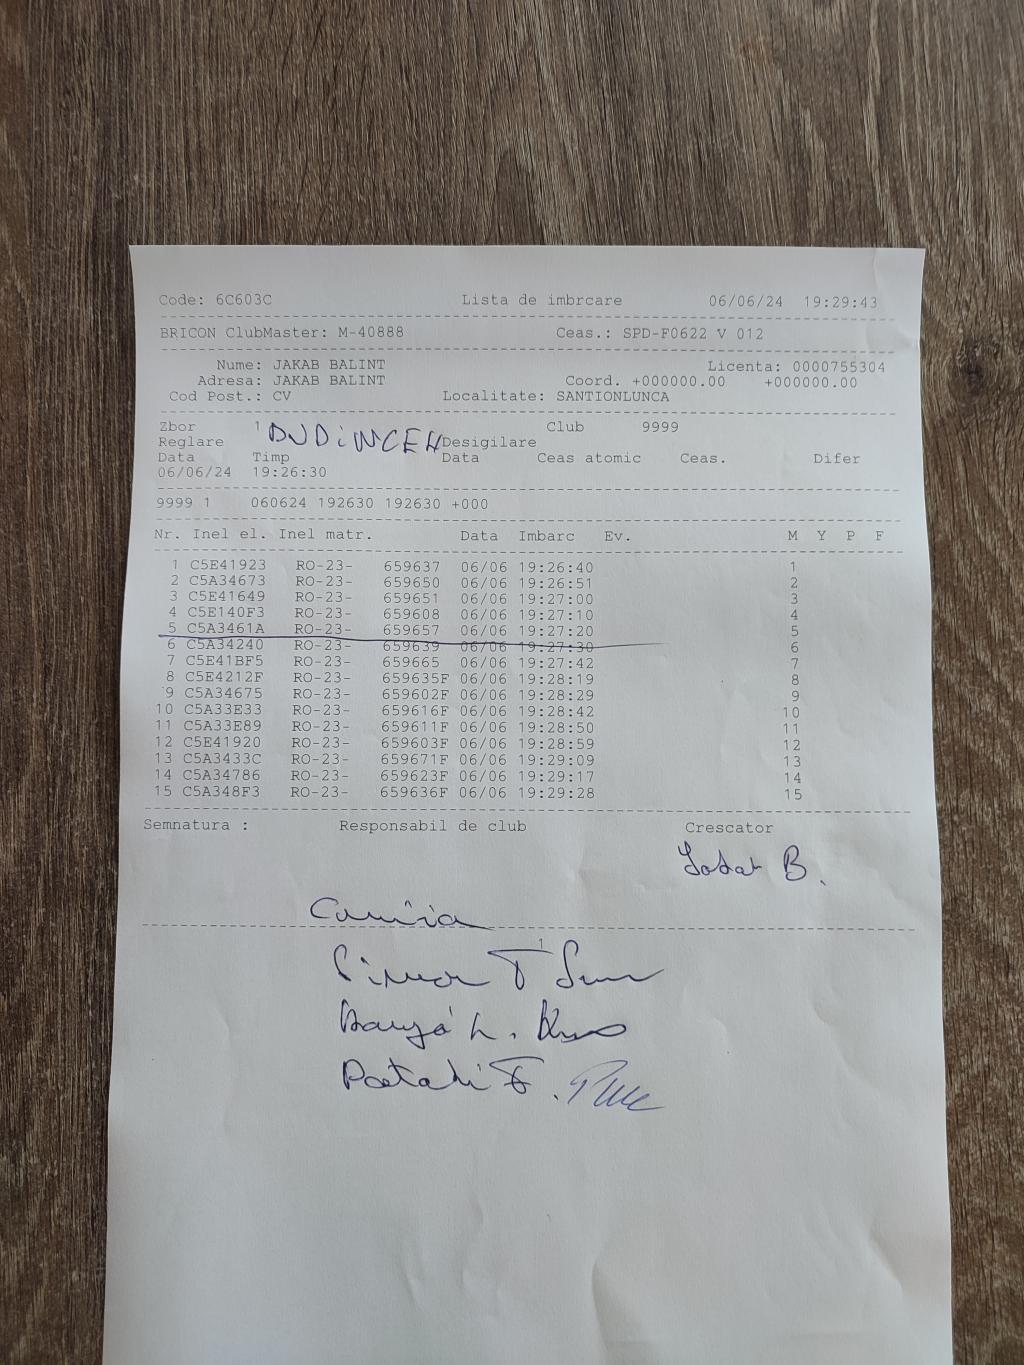 Code: 6C603C Lista de imbrcare 06/06/24 19:29:43
BRICON ClubMaster: M-40888 Ceas.: SPD-F0622 V 012
Nume: JAKAB BALINT Licenta: 0000755304
Adresa: JAKAB BALINT Coord. +000000.00 +000000.00
Cod Post.: CV Localitate: SANTIONLUNCA
Zbor 1 Club 9999
Reglare Desigilare
Data Timp Data Ceas atomic Ceas. Difer
06/06/24 19:26:30
9999 1 060624 192630 192630 +000
Nr. Inel el. Inel matr. Data Imbarc Ev. M Y P F
1 C5E41923 RO-23- 659637 06/06 19:26:40 1
2 C5A34673 RO-23- 659650 06/06 19:26:51 2
3 C5E41649 RO-23- 659651 06/06 19:27:00 3
4 C5E140F3 RO-23- 659608 06/06 19:27:10 4
5 C5A3461A RO-23- 659657 06/06 19:27:20 5
6 C5A34240 RO-23- 659639 06/06 19:27:30 6
7 C5E41BF5 RO-23- 659665 06/06 19:27:42 7
8 C5E4212F RO-23- 659635F 06/06 19:28:19 8
9 C5A34675 RO-23- 659602F 06/06 19:28:29 9
10 C5A33E33 RO-23- 659616F 06/06 19:28:42 10
11 C5A33E89 RO-23- 659611F 06/06 19:28:50 11
12 C5E41920 RO-23- 659603F 06/06 19:28:59 12
13 C5A3433C RO-23- 659671F 06/06 19:29:09 13
14 C5A34786 RO-23- 659623F 06/06 19:29:17 14
15 C5A348F3 RO-23- 659636F 06/06 19:29:28 15
Semnatura : Responsabil de club Crescator
B.
1
Pataki F.